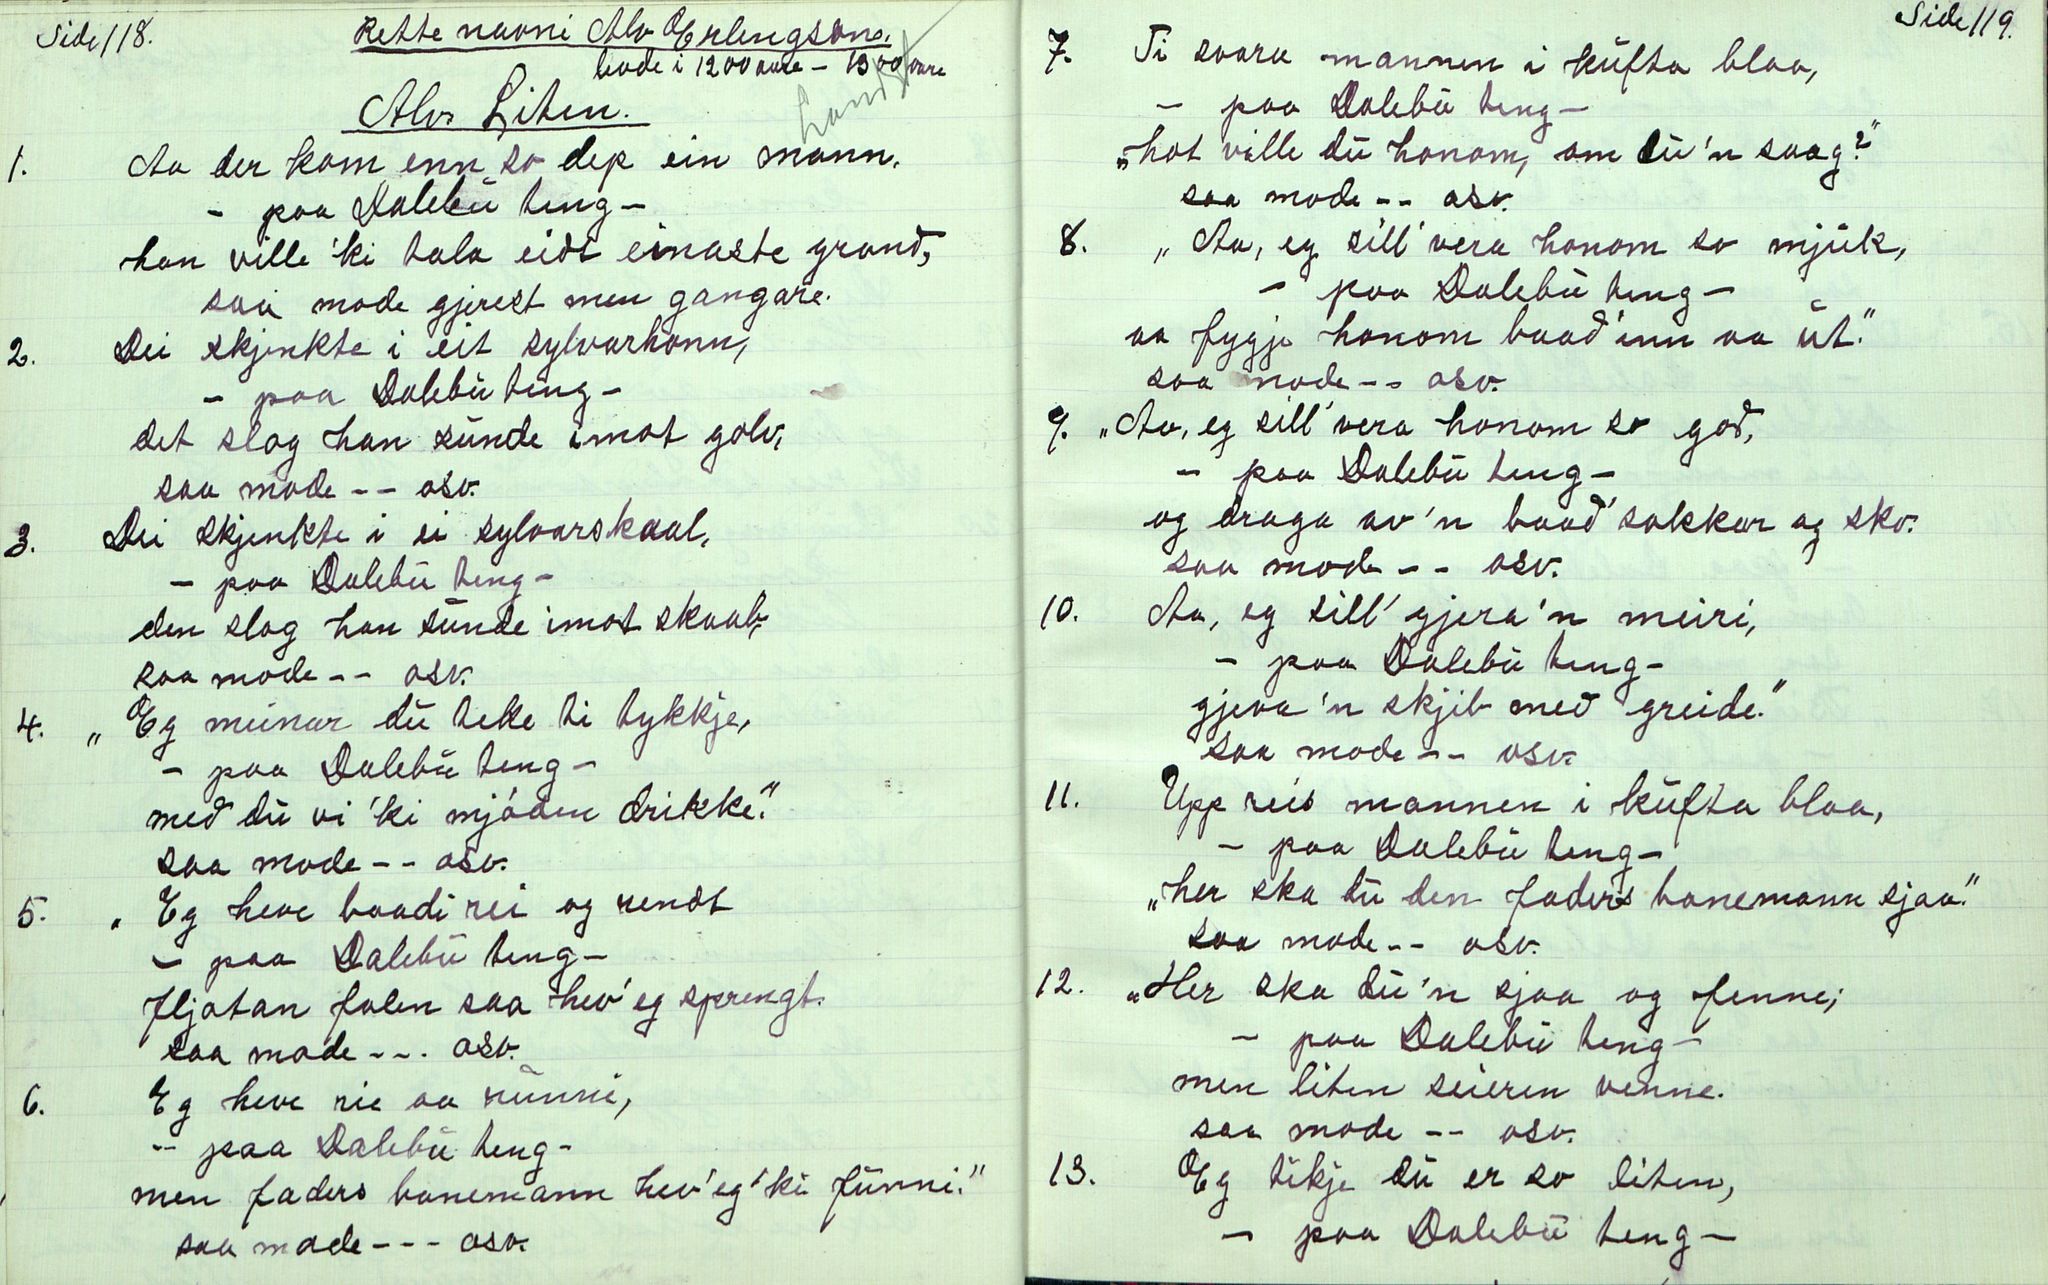 Side 118.
Rette navni Alv Erlengson.
levde i 1200 aare - 1300 aare
Landst
Alv Liten.
1. Aa der kom enn so dep ein mann.
- paa Dalebü teng -
han ville 'ki tala eidt einaste grand,
saa mode gjerest men gangare.
2. Dei skjenkte i eit sylvarhonn,
- paa Dalebü teng -
det slog han sünde imot golv,
saa mode -- osv.
3. Dei skjenkte i ei sylvarskaal,
- paa Dalebü teng -
den slog han sünde imot skaab,
saa mode -- osv.
4. „Eg meinar dü teke ti tykkje,
- paa Dalebü teng -
med dü vi 'ki mjöden drikke."
saa mode -- osv.
5. „Eg heve baadi rei og rendt
- paa Dalebü teng -
fljotan folen saa hev' eg sprengt.
saa mode --- osv.
6. Eg heve rie aa rünni,
- paa Dalebü teng -
men faders banemann hev' eg 'ki fünni."
saa mode --- osv.
Side 119.
7. Ti svara mannen i küfta blaa,
- paa Dalebü teng -
„hot ville dü honom, om dü'n saag?"
saa mode -- osv.
8. „Aa, eg sill' vera honom so mjük,
- paa Dalebü teng -
aa fygje honom baad' inn aa üt."
saa mode -- osv.
9. „Aa, eg sill' vera honom so god,
- paa Dalebü teng -
og draga av'n baad' sokkar og sko.
saa mode -- osv.
10. Aa, eg sill' gjera'n meiri,
- paa Dalebü teng -
gjeva'n skjib med greide."
saa mode -- osv.
11. Upp reis mannen i küfta blaa,
- paa Dalebü teng -
„her ska dü den faders banemann sjaa."
saa mode -- osv.
12. „Her ska dü'n sjaa og fenne;
- paa Dalebü teng -
men liten seieren venne.
saa mode -- osv.
13. Eg tikje dü er so liten,
- paa Dalebü teng -